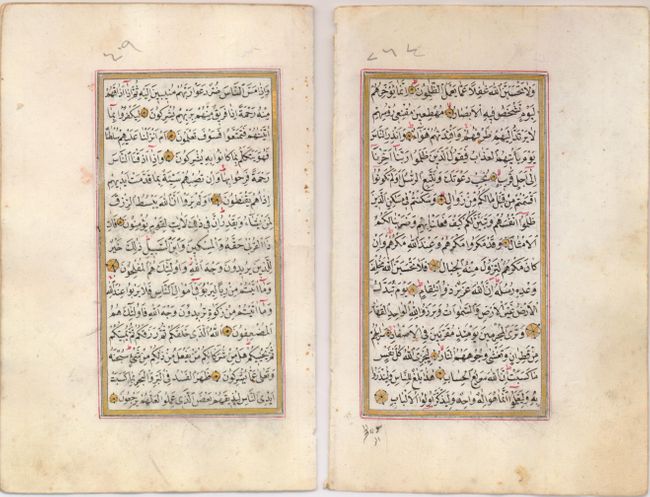 وَلَا تَحْسَبَنَّ اللّٰهَ غَافِلًا عَمَّا يَعْمَلُ الظَّالِمُونَ اِنَّمَا يُؤَخِّرُهُمْ
لِيَوْمٍ تَشْخَصُ فِيهِ الْاَبْصَارُ مُهْطِعِينَ مُقْنِعِي رُؤُسِهِمْ
لَا يَرْتَدُّ اِلَيْهِمْ طَرْفُهُمْ وَاَفْئِدَتُهُمْ هَوَاءٌ وَاَنْذِرِ النَّاسَ
يَوْمَ يَأْتِيهِمُ الْعَذَابُ فَيَقُولُ الَّذِينَ ظَلَمُوا رَبَّنَا اَخِّرْنَا
اِلَى اَجَلٍ قَرِيبٍ نُجِبْ دَعْوَتَكَ وَنَتَّبِعِ الرُّسُلَ اَوَلَمْ تَكُونُوا
اَقْسَمْتُمْ مِنْ قَبْلُ مَا لَكُمْ مِنْ زَوَالٍ وَسَكَنْتُمْ فِي مَسَاكِنِ الَّذِينَ
ظَلَمُوا اَنْفُسَهُمْ وَتَبَيَّنَ لَكُمْ كَيْفَ فَعَلْنَا بِهِمْ وَضَرَبْنَا لَكُمُ
الْاَمْثَالَ وَقَدْ مَكَرُوا مَكْرَهُمْ وَعِنْدَ اللّٰهِ مَكْرُهُمْ وَاِنْ
كَانَ مَكْرُهُمْ لِتَزُولَ مِنْهُ الْجِبَالُ فَلَا تَحْسَبَنَّ اللّٰهَ مُخْلِفَ
وَعْدِهِ رُسُلَهُ اِنَّ اللّٰهَ عَزِيزٌ ذُو انْتِقَامٍ يَوْمَ تُبَدَّلُ
الْاَرْضُ غَيْرَ الْاَرْضِ وَالسَّمٰوَاتُ وَبَرَزُوا لِلّٰهِ الْوَاحِدِ الْقَهَّارِ
وَتَرَى الْمُجْرِمِينَ يَوْمَئِذٍ مُقَرَّنِينَ فِي الْاَصْفَادِ سَرَابِيلُهُمْ
مِنْ قَطِرَانٍ وَتَغْشَى وُجُوهَهُمُ النَّارُ لِيَجْزِيَ اللّٰهُ كُلَّ نَفْسٍ
مَا كَسَبَتْ اِنَّ اللّٰهَ سَرِيعُ الْحِسَابِ هٰذَا بَلَاغٌ لِلنَّاسِ وَلِيُنْذَرُوا
بِهِ وَلِيَعْلَمُوا اَنَّمَا هُوَ اِلٰهٌ وَاحِدٌ وَلِيَذَّكَّرَ اُولُوا الْاَلْبَابِ
وَاِذَا مَسَّ النَّاسَ ضُرٌّ دَعَوْا رَبَّهُمْ مُنِيبِينَ اِلَيْهِ ثُمَّ اِذَا اَذَاقَهُمْ
مِنْهُ رَحْمَةً اِذَا فَرِيقٌ مِنْهُمْ بِرَبِّهِمْ يُشْرِكُونَ لِيَكْفُرُوا بِمَا
اٰتَيْنَاهُمْ فَتَمَتَّعُوا فَسَوْفَ تَعْلَمُونَ اَمْ اَنْزَلْنَا عَلَيْهِمْ سُلْطَانًا
فَهُوَ يَتَكَلَّمُ بِمَا كَانُوا بِهِ يُشْرِكُونَ وَاِذَا اَذَقْنَا النَّاسَ
رَحْمَةً فَرِحُوا بِهَا وَاِنْ تُصِبْهُمْ سَيِّئَةٌ بِمَا قَدَّمَتْ اَيْدِيهِمْ
اِذَا هُمْ يَقْنَطُونَ اَوَلَمْ يَرَوْا اَنَّ اللّٰهَ يَبْسُطُ الرِّزْقَ
لِمَنْ يَشَاءُ وَيَقْدِرُ اِنَّ فِي ذٰلِكَ لَاٰيَاتٍ لِقَوْمٍ يُؤْمِنُونَ فَاٰتِ
ذَا الْقُرْبَى حَقَّهُ وَالْمِسْكِينَ وَابْنَ السَّبِيلِ ذٰلِكَ خَيْرٌ
لِلَّذِينَ يُرِيدُونَ وَجْهَ اللّٰهِ وَاُولٰئِكَ هُمُ الْمُفْلِحُونَ
وَمَا اٰتَيْتُمْ مِنْ رِبًا لِيَرْبُوَا فِي اَمْوَالِ النَّاسِ فَلَا يَرْبُوا عِنْدَ اللّٰهِ
وَمَا اٰتَيْتُمْ مِنْ زَكٰوةٍ تُرِيدُونَ وَجْهَ اللّٰهِ فَاُولٰئِكَ هُمُ
الْمُضْعِفُونَ اَللّٰهُ الَّذِي خَلَقَكُمْ ثُمَّ رَزَقَكُمْ ثُمَّ يُمِيتُكُمْ
ثُمَّ يُحْيِيكُمْ هَلْ مِنْ شُرَكَائِكُمْ مَنْ يَفْعَلُ مِنْ ذٰلِكُمْ مِنْ شَيْءٍ سُبْحَانَهُ
وَتَعَالَى عَمَّا يُشْرِكُونَ ظَهَرَ الْفَسَادُ فِي الْبَرِّ وَالْبَحْرِ بِمَا كَسَبَتْ
اَيْدِي النَّاسِ لِيُذِيقَهُمْ بَعْضَ الَّذِي عَمِلُوا لَعَلَّهُمْ يَرْجِعُونَ